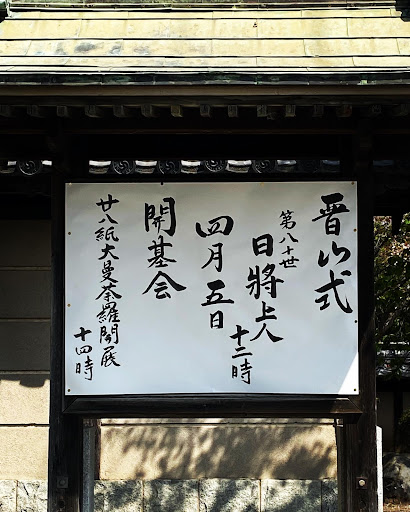 晋山式
第八十世
日將上人
十二時
四月五日
開基会
廿八紙大曼荼羅開展
十四時